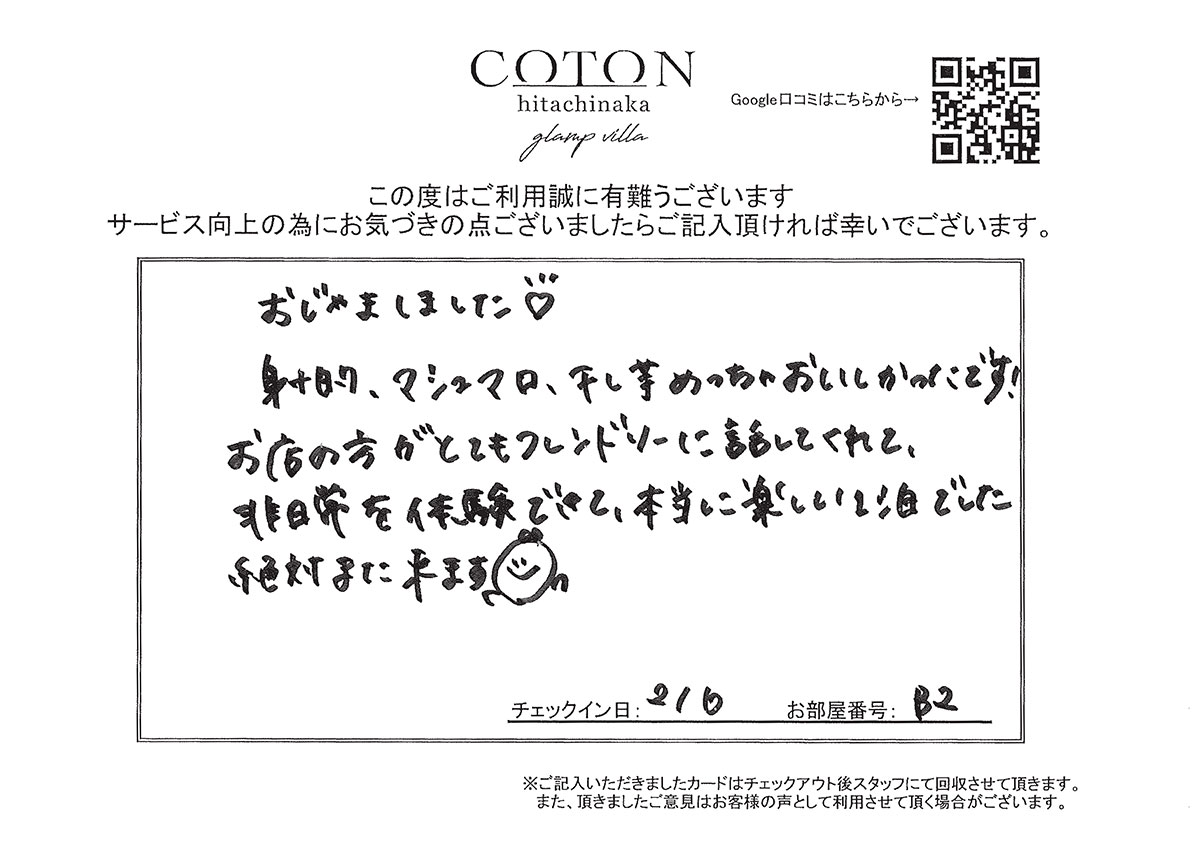 COTON
hitachinaka
glamp villa
Google口コミはこちらから→
この度はご利用誠に有難うございます
サービス向上の為にお気づきの点ございましたらご記入頂ければ幸いでございます。
おじゃましました♡
射的、マシュマロ、干し芋めっちゃおいしかったです!
お店の方がとてもフレンドリーに話してくれて、
非日常を体験できて、本当に楽しい1泊でした
絶対また来ます
チェックイン日: 2/6 お部屋番号: B2
※ご記入いただきましたカードはチェックアウト後スタッフにて回収させて頂きます。
また、頂きましたご意見はお客様の声として利用させて頂く場合がございます。